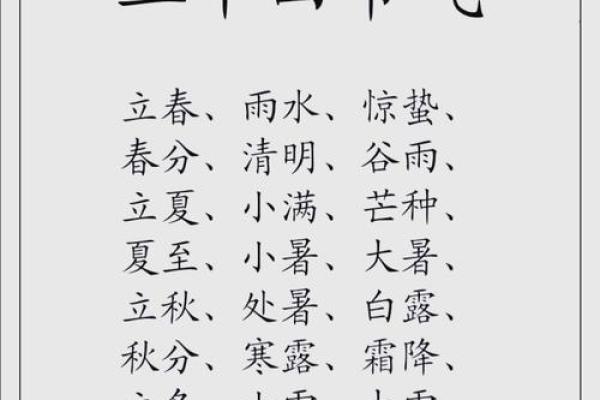 立春、雨水、惊蛰、
春分、清明、谷雨、
立夏、小满、芒种、
夏至、小暑、大暑、
立秋、处暑、白露、
秋分、寒露、霜降、